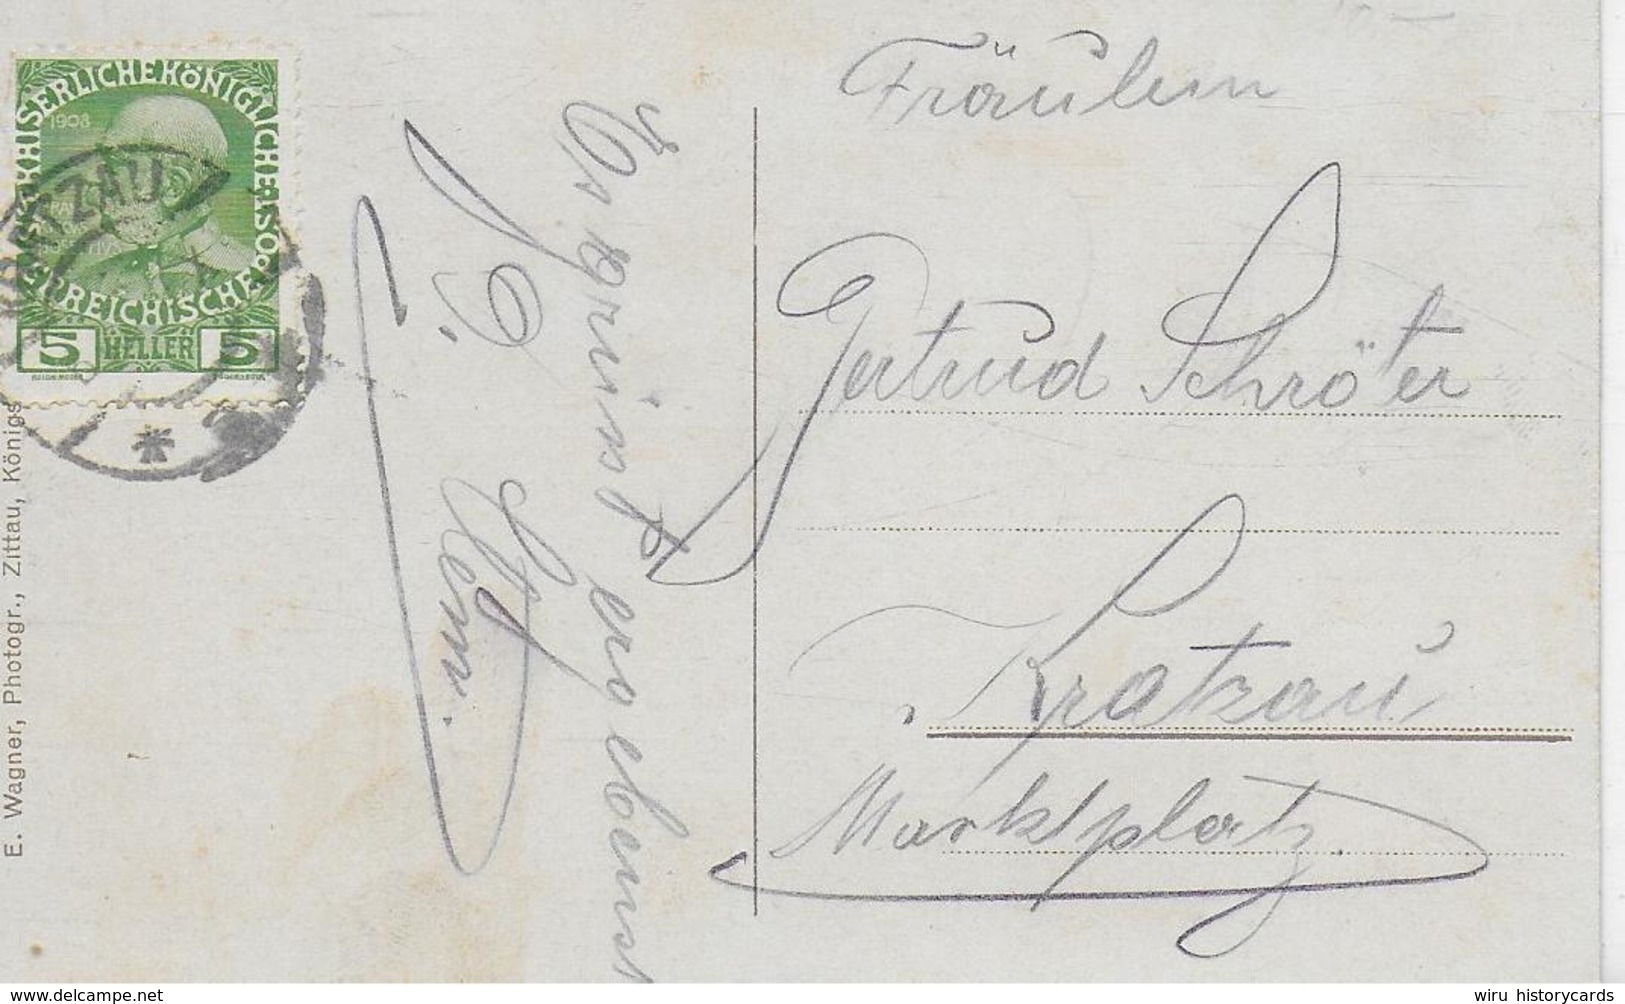 KAISERLICHE KÖNIGLICHE
ÖSTERREICHISCHE POST
1908
5 HELLER 5
KRATZAU
E. Wagner, Photogr., Zittau, Königs
Es grüsst ergebenst
Fräulein
Gertrud Schröter
Kratzau
Marktplatz
wiru historycards